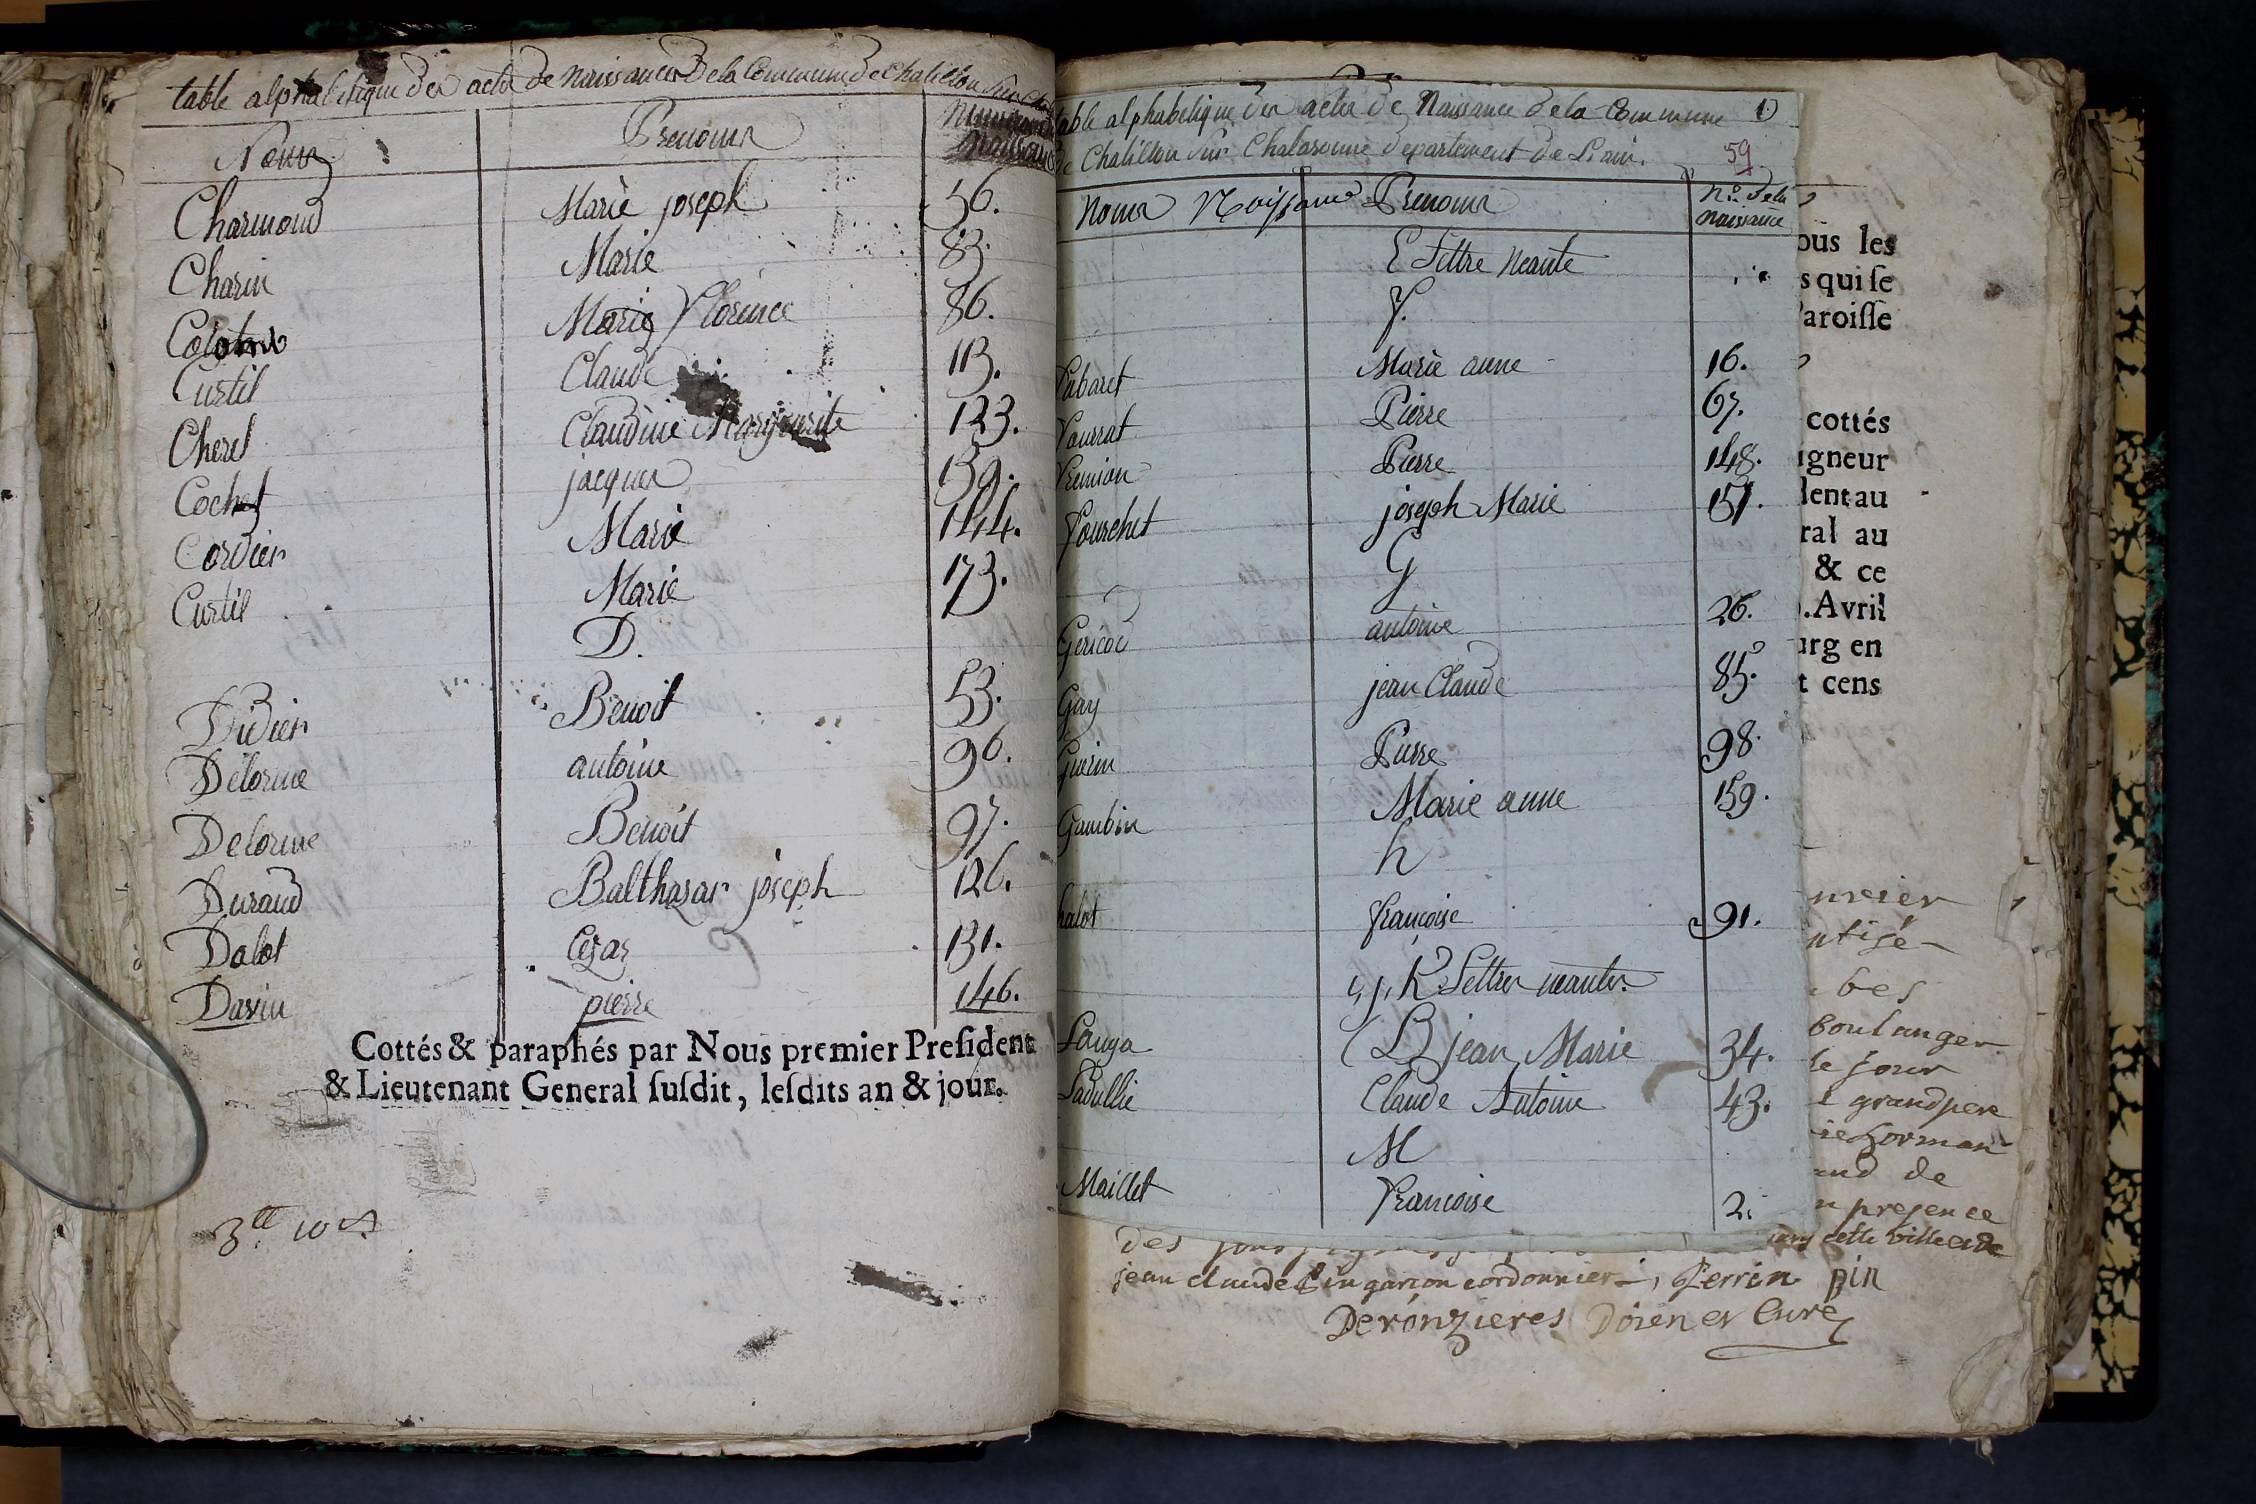 table alphabetique des actes de Naissances De la Commune De chatillon sur
Noms Prenoms
Charmond Marie joseph 56.
Charin Marie 83.
Marie Florence 86.
Curtil Claude 113.
Cheret Claudine Marguerite 123.
Cochet jacques 139.
Cordier Marie 144.
Curtil Marie 173.
D.
Didier Benoit 53.
Delorme antoine 96.
Delorme Benoit 97.
Durand Balthazar joseph 126.
Dalot Cezar 131.
Davin pierre 146.
Cottés & paraphés par Nous premier Preſident
& Lieutenant General ſuſdit, leſdits an & jour.
3tt 10 s
table alphabetique des actes de Naissance De la Commune
De Chatillon sur Chalaronne departement De L'ain. 59
Noms Naissance Prenoms No. Dela naissance
E Lettre neante
F.
Fabaret Marie anne 16.
Fourrat Pierre 67.
Fremion Pierre 148.
Fourchet joseph Marie 151.
G
Gericod antoine 26.
Gay jean Claude 85.
Guerin Pierre 98.
Gambin Marie anne 159.
h
halot francoise 91.
i, j, K Lettres neantes.
L jean Marie 34.
Claude Antoine 43.
M
Maillet Francoise 2.
ous les
s qui ſe
aroiſſe
cottés
igneur
dent au
ral au
& ce
. Avril
urg en
t cens
boulanger
le jour
grandpere
and de
n presence
cette ville et de
jean claude garcon cordonnier, Perrin pin
Deronzieres Doien et Curé